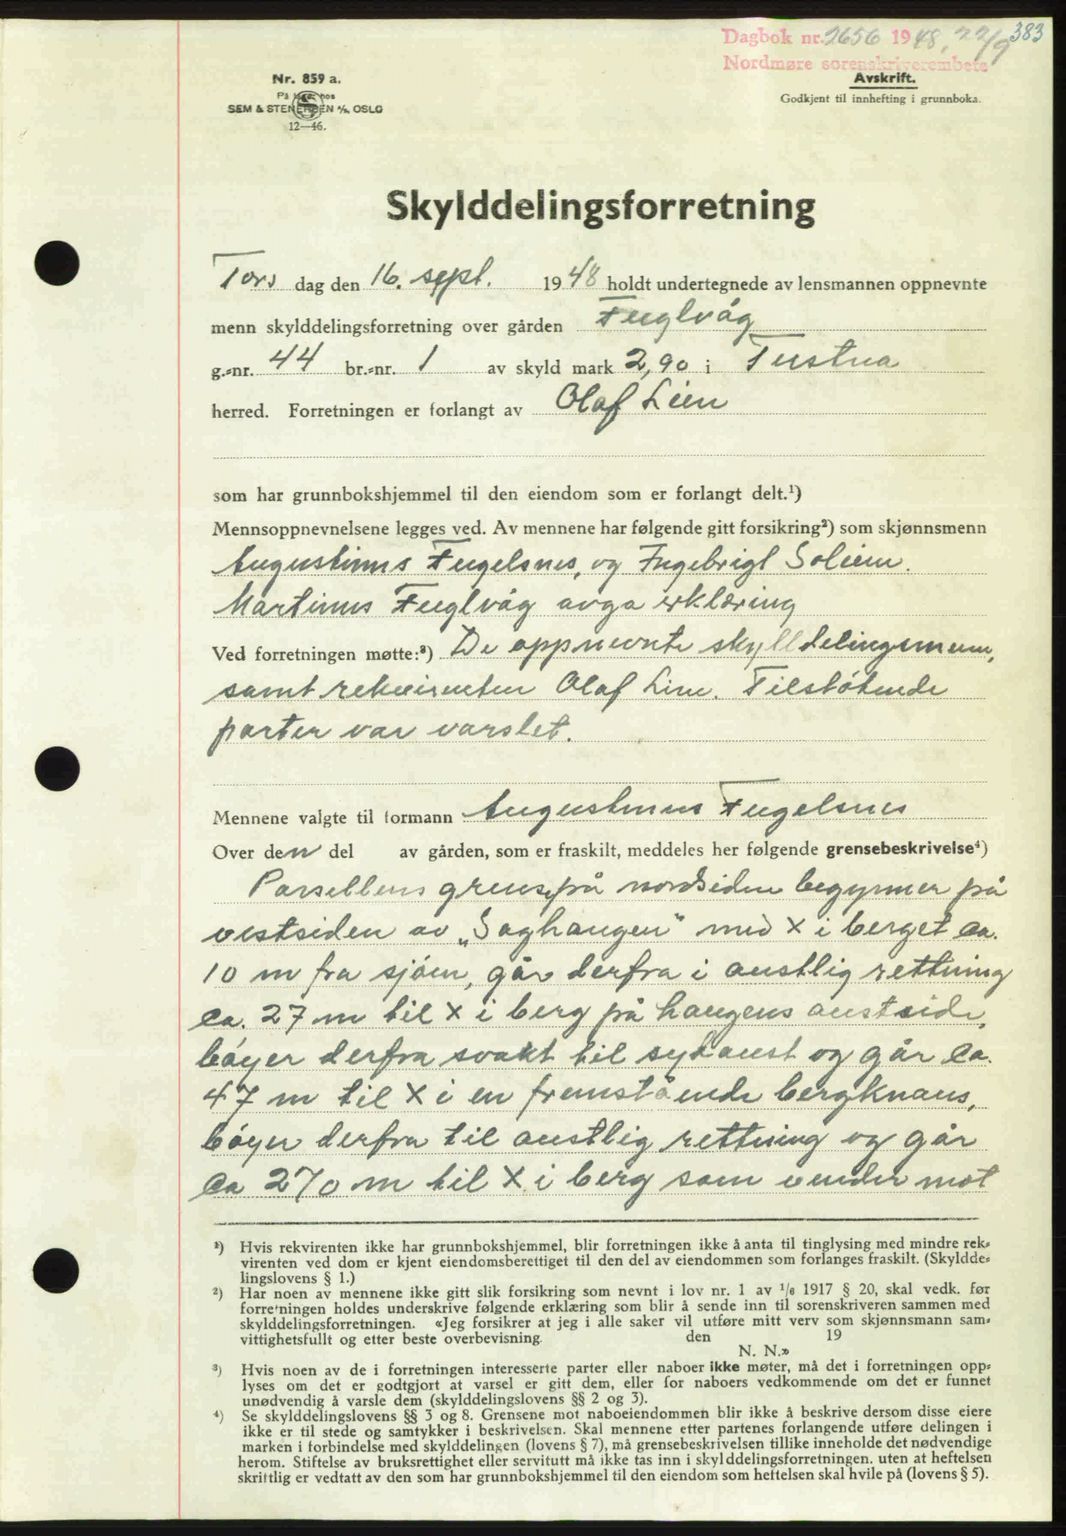 383
Dagbok nr. 2656 1948, 22/9
Nordmøre sorenskriverembete
Nr. 859 a.
På lager hos
SEM & STENERSEN A/S, OSLO
12—46.
Avskrift.
Godkjent til innhefting i grunnboka.
Skylddelingsforretning
Tors dag den 16. sept. 1948 holdt undertegnede av lensmannen oppnevnte
menn skylddelingsforretning over gården Fuglvåg
g.-nr. 44 br.-nr. 1 av skyld mark 2,90 i Tustna
herred. Forretningen er forlangt av Olaf Lien
som har grunnbokshjemmel til den eiendom som er forlangt delt.¹)
Mennsoppnevnelsene legges ved. Av mennene har følgende gitt forsikring²) som skjønnsmenn
Augustinus Fugelsnes, og Ingebrigt Soleim.
Martinus Fuglvåg avga erklæring
Ved forretningen møtte:³) De oppnevnte skylldelingsmenn,
samt rekvirenten Olaf Lien. Tilstøtende
parter var varslet.
Mennene valgte til formann Augustinus Fugelsnes
Over den del av gården, som er fraskilt, meddeles her følgende grensebeskrivelse⁴)
Parsellens grense på nordsiden begynner på
vestsiden av „Saghaugen" med X i berget ca.
10 m fra sjøen, går derfra i austlig rettning
ca. 27 m til X i berg på haugens austside,
bøyer derfra svakt til sydaust og går ca.
47 m til X i en fremstående bergknaus,
bøyer derfra til austlig rettning og går
ca 270 m til X i berg som vender mot
¹) Hvis rekvirenten ikke har grunnbokshjemmel, blir forretningen ikke å anta til tinglysing med mindre rek-
virenten ved dom er kjent eiendomsberettiget til den del av eiendommen som forlanges fraskilt. (Skyldde-
lingslovens § 1.)
²) Har noen av mennene ikke gitt slik forsikring som nevnt i lov nr. 1 av ¹/₆ 1917 § 20, skal vedk. før
forretningen holdes underskrive følgende erklæring som blir å sende inn til sorenskriveren sammen med
skylddelingsforretningen. «Jeg forsikrer at jeg i alle saker vil utføre mitt verv som skjønnsmann sam-
vittighetsfullt og etter beste overbevisning. den 19
N. N.»
³) Hvis noen av de i forretningen interesserte parter eller naboer ikke møter, må det i forretningen opp-
lyses om det er godtgjort at varsel er gitt dem, eller for naboers vedkommende om det er funnet
unødvendig å varsle dem (skylddelingslovens §§ 2 og 3).
⁴) Se skylddelingslovens §§ 3 og 8. Grensene mot naboeiendommen blir ikke å beskrive dersom disse eiere
ikke er til stede og samtykker i beskrivelsen. Skal mennene etter partenes forlangende utføre delingen i
marken i forbindelse med skylddelingen (lovens § 7), må grensebeskrivelsen tillike inneholde det nødvendige
herom. Stiftelse av bruksrettighet eller servitutt må ikke tas inn i skylddelingsforretningen, uten at heftelsen
skriftlig er vedtatt av den som har grunnbokshjemmel til den eiendom som heftelsen skal hvile på (lovens § 5).